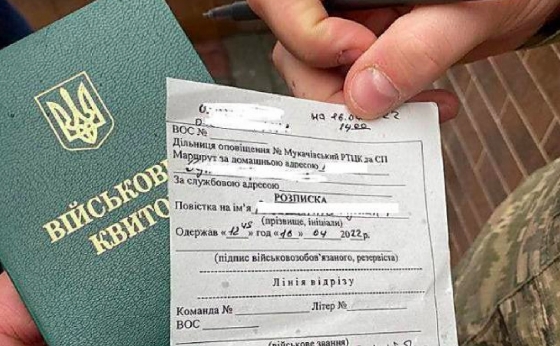 ВІЙСЬКОВ
КВИТО
на 16.04 22
14.00
ВОС №
Дільниця оповіщення № Мукачівський РТЦК за СП
Маршрут за домашньою адресою
За службовою адресою
РОЗПИСКА
Повістка на ім'я
(прізвище, ініціали)
Одержав «12 45» год «16» 04 2022р.
(підпис військовозобов'язаного, резервіста)
Лінія відрізу
Команда № Літер №
ВОС
(військове звання)